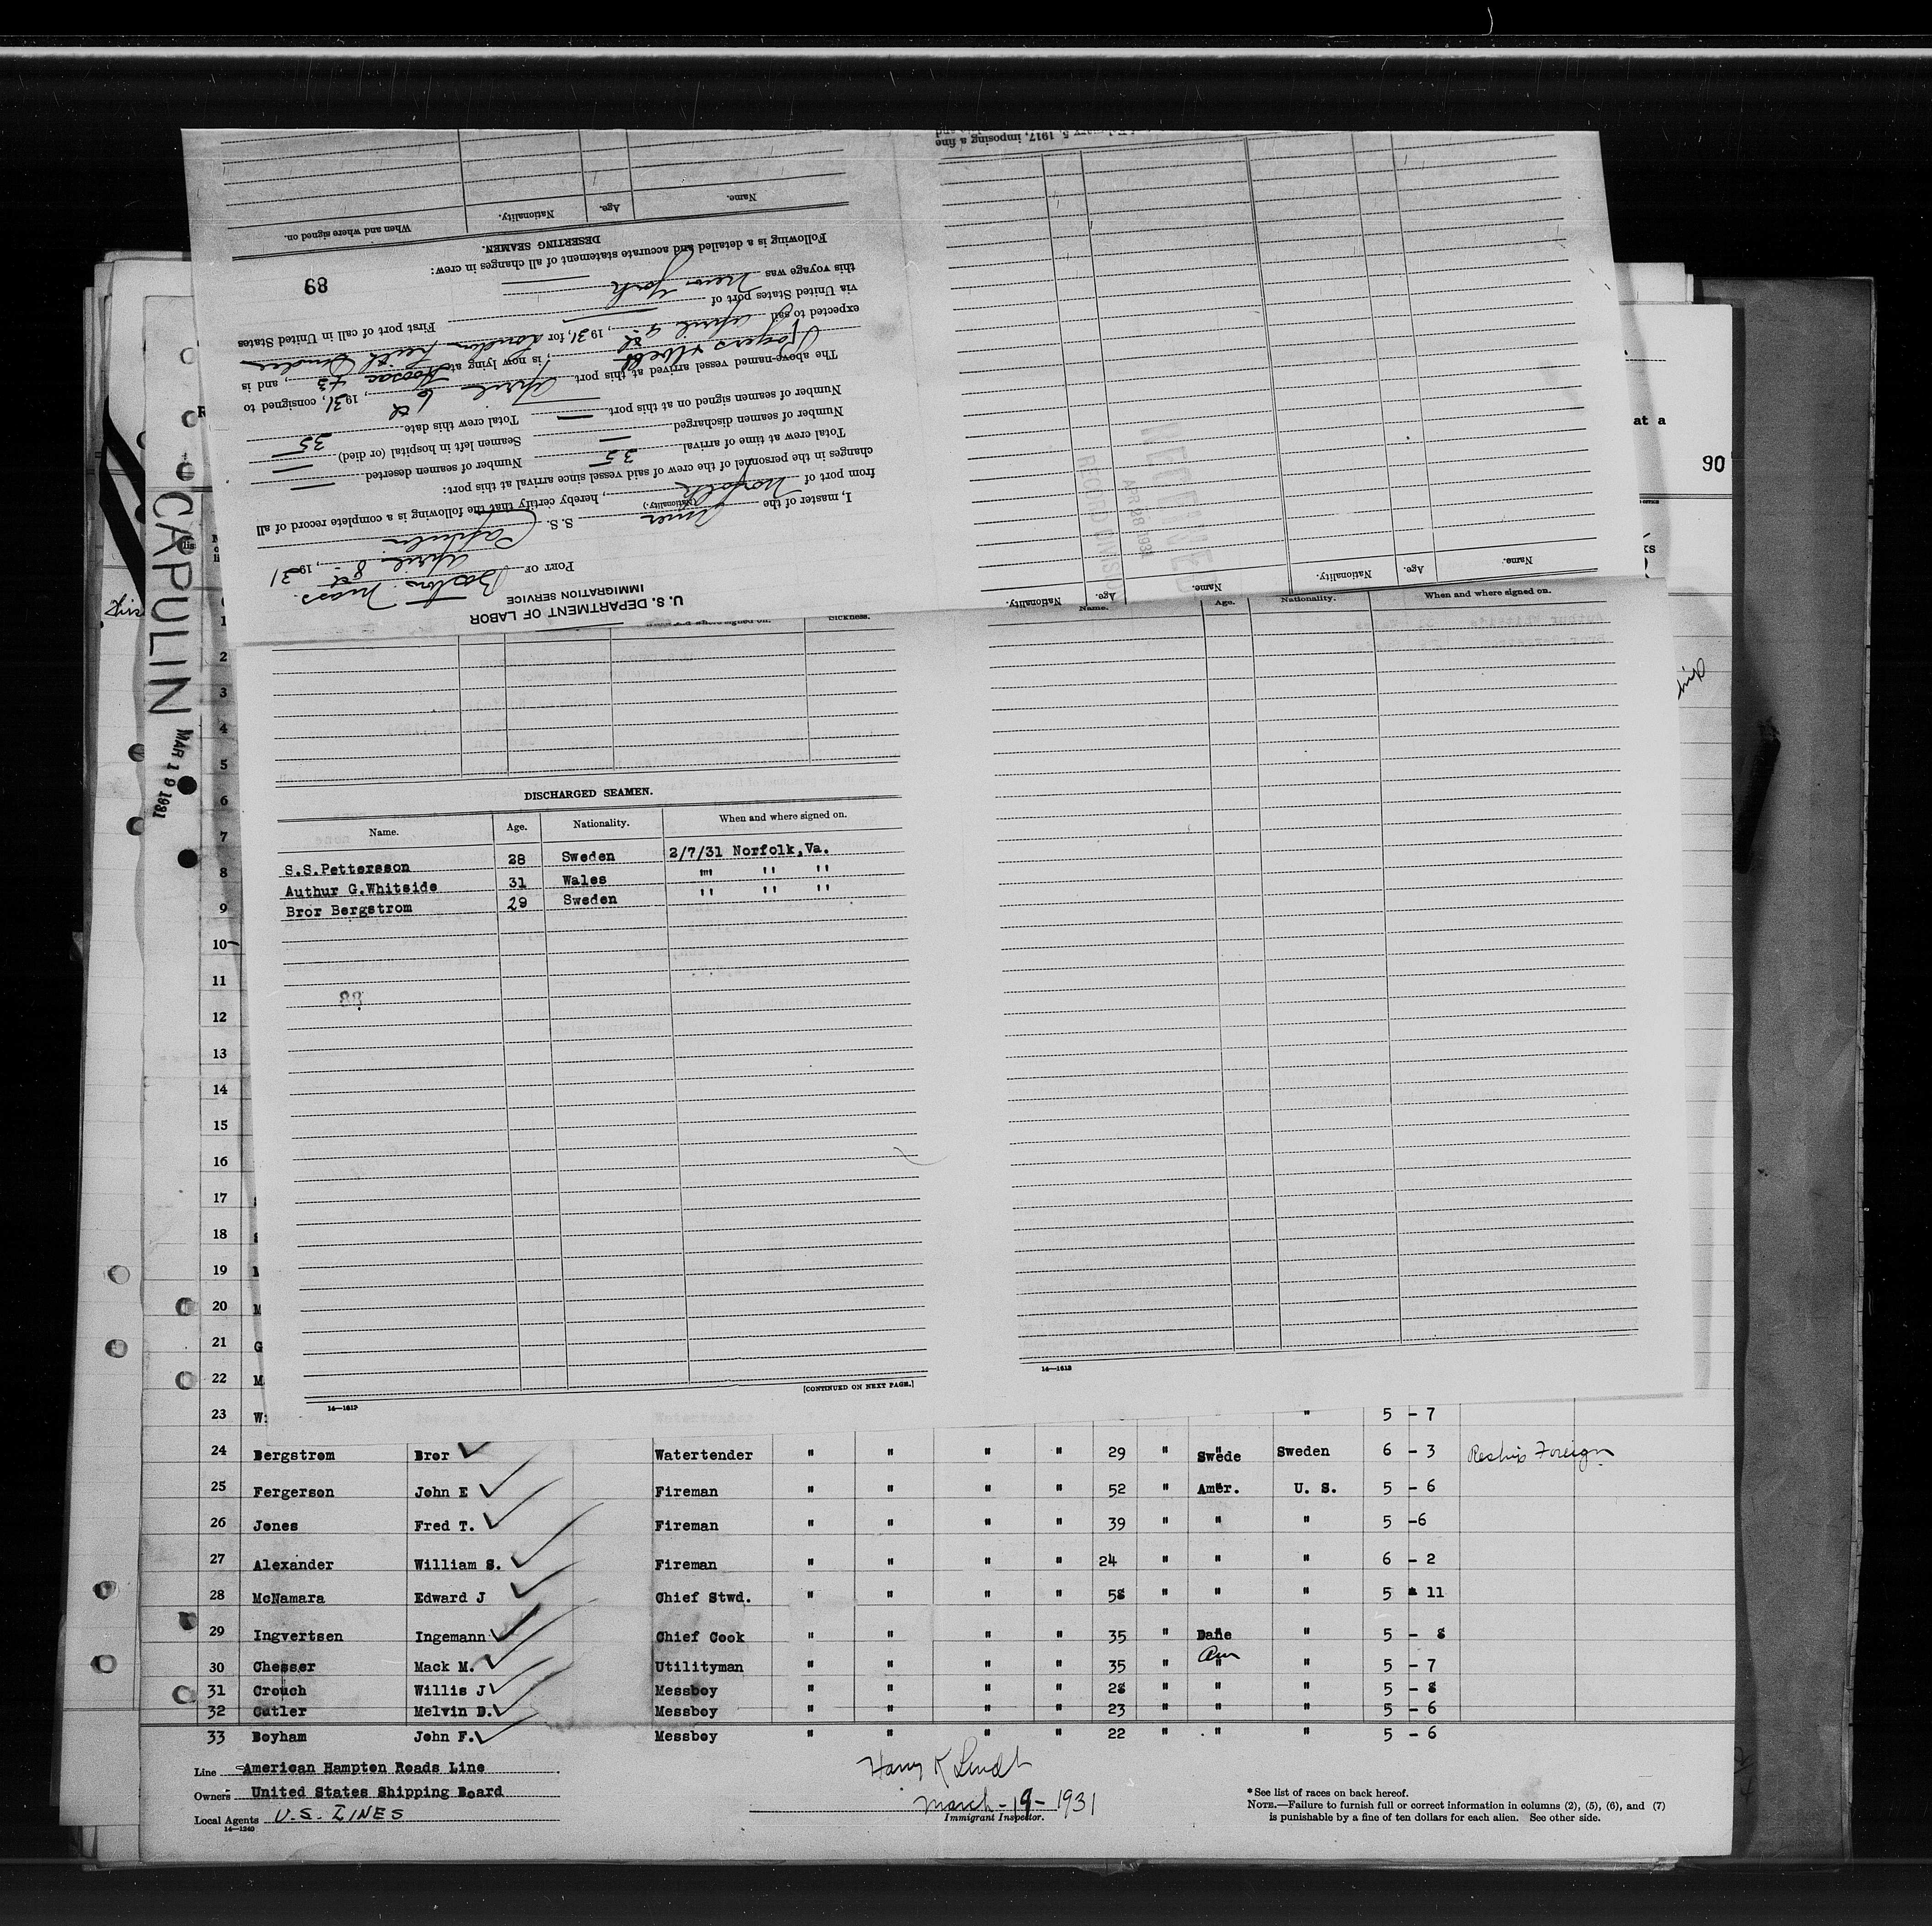 February 5, 1917, imposing a fine
Name. Age. Nationality. When and where signed on.
DESERTING SEAMEN.
Following is a detailed and accurate statement of all changes in crew:
89
this voyage was New York
via United States port of First port of call in United States
expected to sail April 9th, 1931, for London Leith Dundee
Rogers & Webb; is now lying at Hoosac #3, and is
The above-named vessel arrived at this port April 6th, 1931, consigned to
Number of seamen signed on at this port — Total crew this date 35
Number of seamen discharged — Seamen left in hospital (or died) —
Total crew at time of arrival 35 Number of seamen deserted —
changes in the personnel of the crew of said vessel since arrival at this port:
from port of Norfolk, hereby certify that the following is a complete record of all
I, master of the Amer S. S. Capulin
(Nationality.)
April 8th, 1931
PORT OF Boston Mass.
IMMIGRATION SERVICE
U. S. DEPARTMENT OF LABOR
RECEIVED
APR 28 1931
RECORD DIVISION
Name. Age. Nationality. Name. Age. Nationality.
at a
90
CAPULIN
MAR 19 1931
This
Sickness.
Name. Age. Nationality. When and where signed on.
DISCHARGED SEAMEN.
Name. Age. Nationality. When and where signed on.
S.S.Pettersson 28 Sweden 2/7/31 Norfolk,Va.
Authur G.Whitside 31 Wales "" " "
Bror Bergstrom 29 Sweden " " "
88
[CONTINUED ON NEXT PAGE.]
14—1613
14—1613
1
2
3
4
5
6
7
8
9
10
11
12
13
14
15
16
17
18
19
20 M
21 G
22 M
23 W Watertender " 5 - 7
24 Bergstrom Bror Watertender " " " " 29 " Swede Sweden 6 - 3 Reship Foreign
25 Fergerson John E Fireman " " " " 52 " Amer. U. S. 5 - 6
26 Jones Fred T. Fireman " " " " 39 " " " 5 -6
27 Alexander William S. Fireman " " " " 24 " " " 6 - 2
28 McNamara Edward J Chief Stwd. " " " " 58 " " " 5 - 11
29 Ingvertsen Ingemann Chief Cook " " " " 35 " Dane " 5 - 8
30 Chesser Mack M. Utilityman " " " " 35 " Am " " 5 - 7
31 Crouch Willis J Messboy " " " " 28 " " " 5 - 8
32 Cutler Melvin D. Messboy " " " " 23 " " " 5 - 6
33 Boyham John F. Messboy " " " " 22 " " " 5 - 6
Line American Hampton Roads Line
Owners United States Shipping Board
Local Agents U.S. LINES
14—1240
March-19-1931
Immigrant Inspector.
*See list of races on back hereof.
NOTE.—Failure to furnish full or correct information in columns (2), (5), (6), and (7)
is punishable by a fine of ten dollars for each alien. See other side.